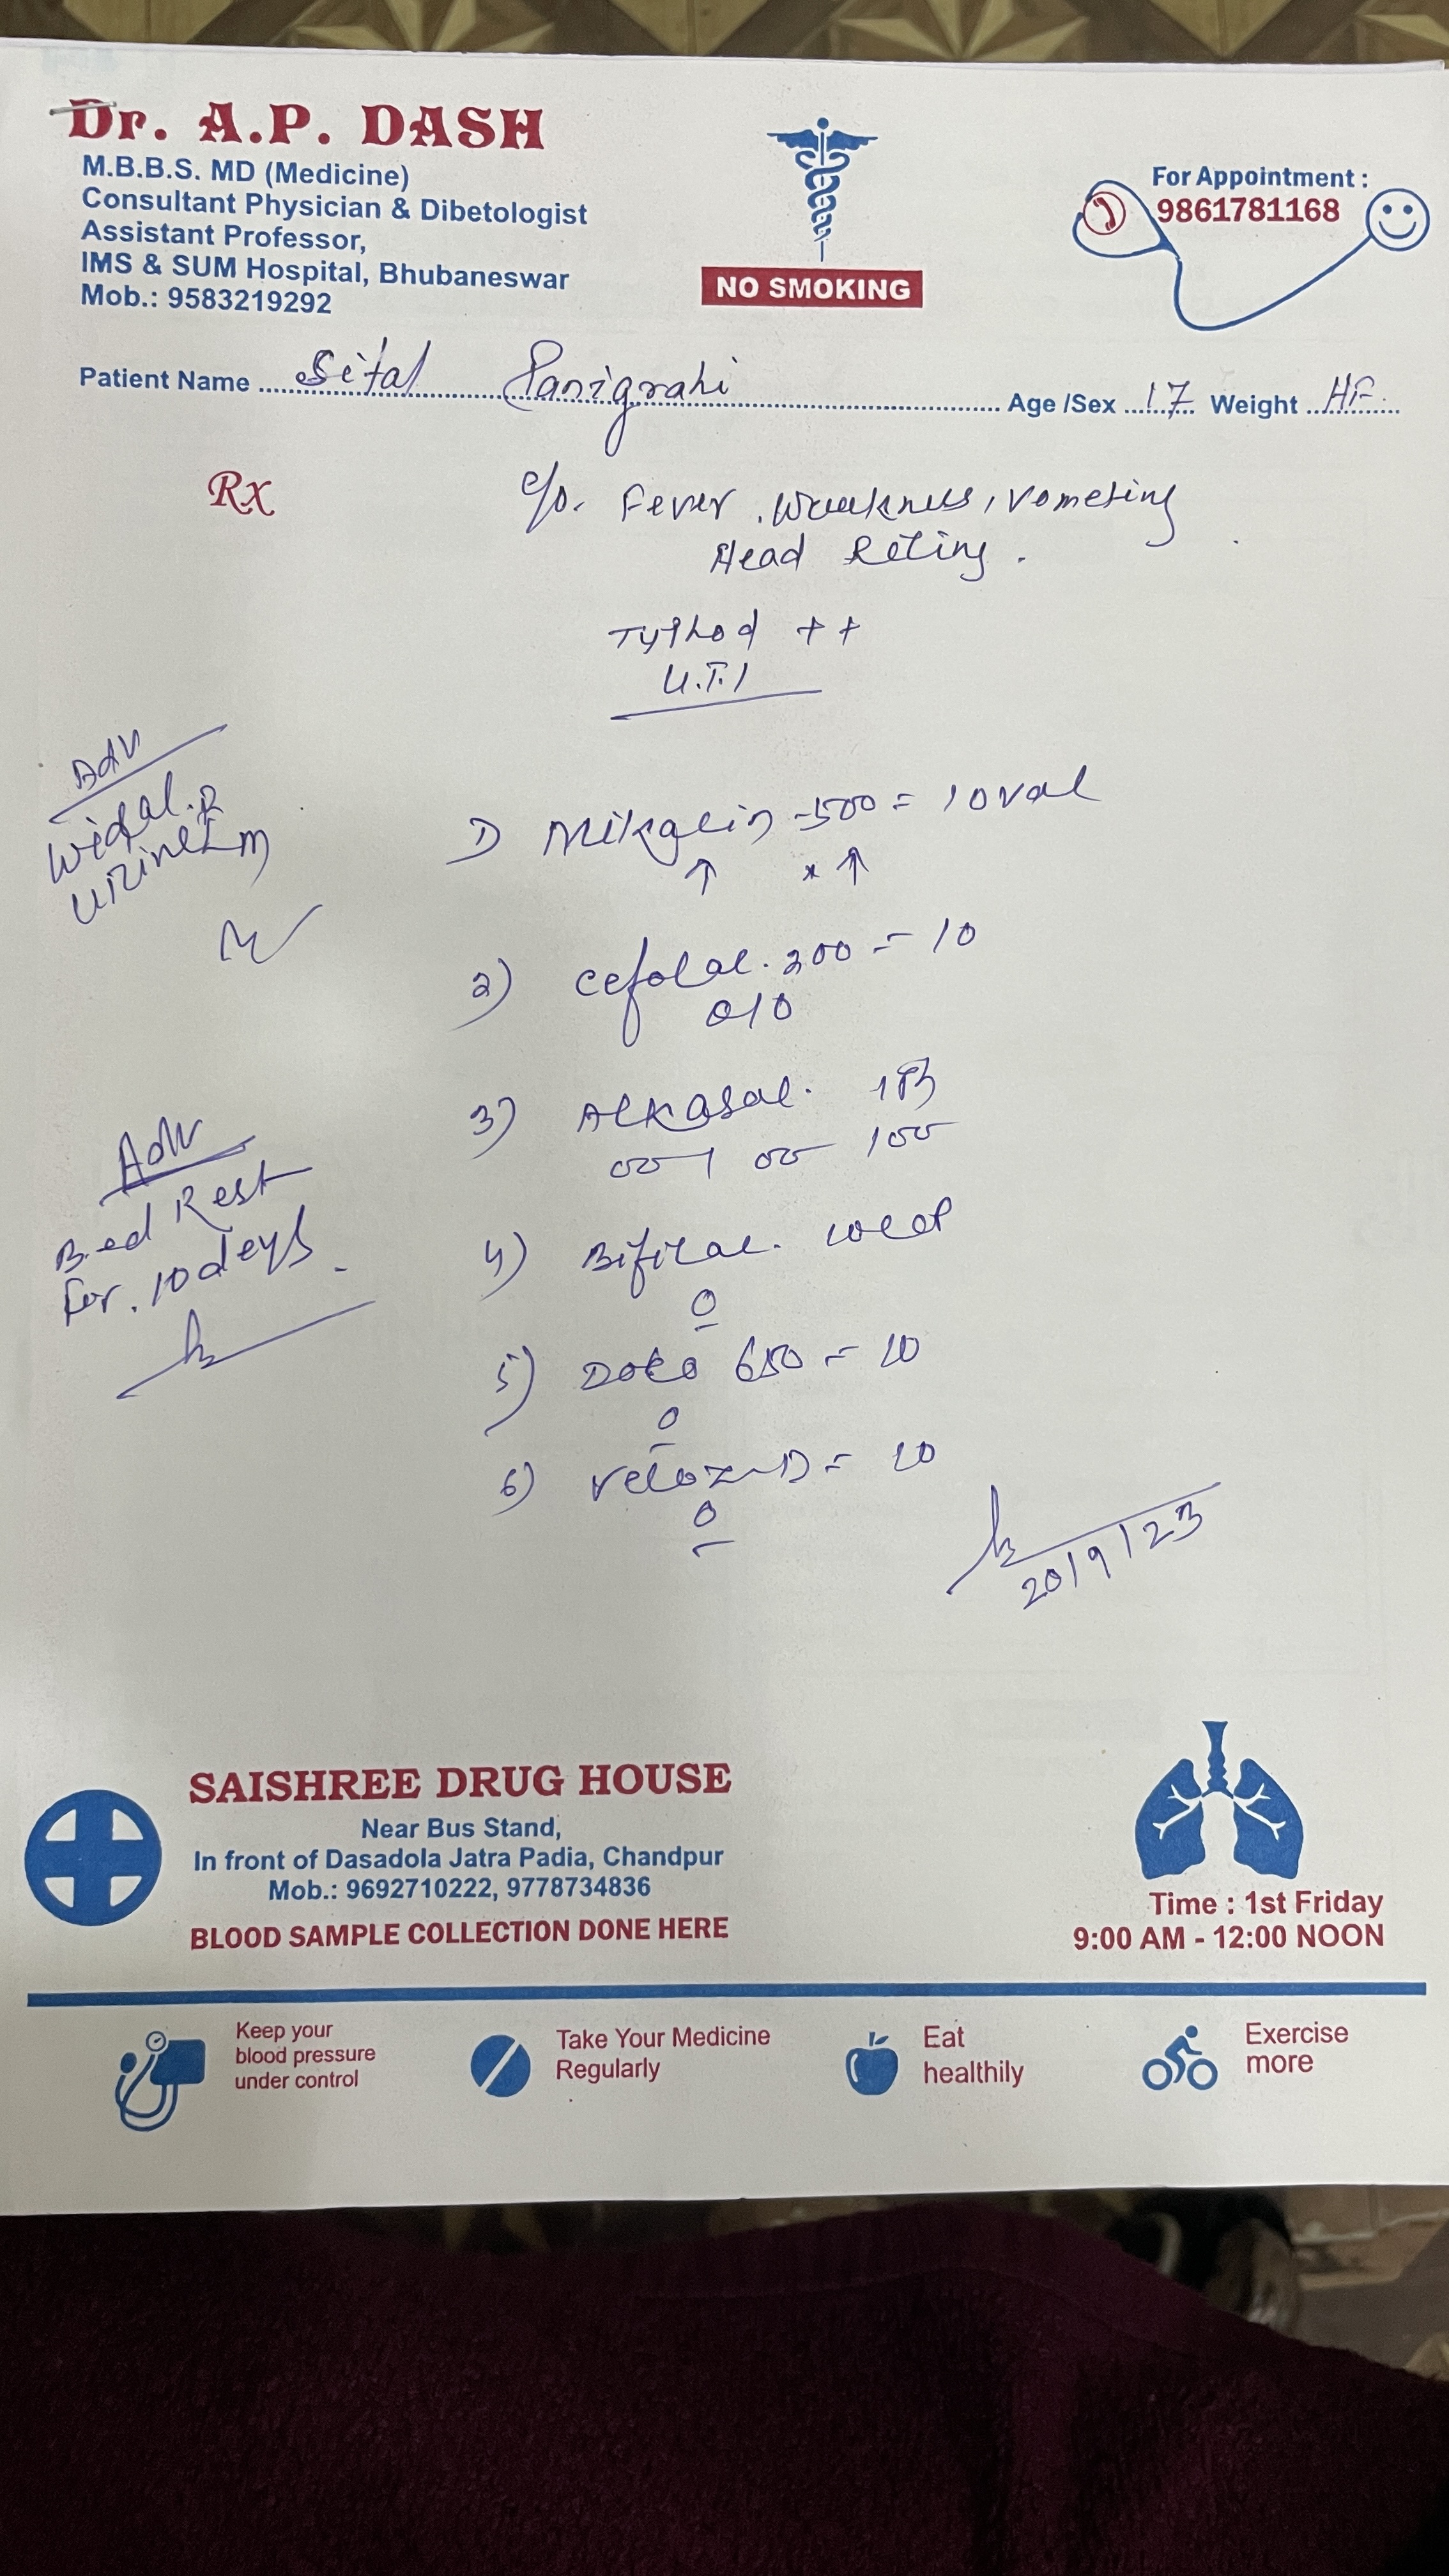 Dr. A.P. DASH
M.B.B.S. MD (Medicine)
Consultant Physician & Dibetologist
Assistant Professor,
IMS & SUM Hospital, Bhubaneswar
Mob.: 9583219292
NO SMOKING
For Appointment :
9861781168
Patient Name Sital Panigrahi Age /Sex 17 Weight
Rx
c/o. Fever, Weakness, vometing
Head Reting.
Typhod ++
U.T.I
Adv
Widal.
Urine
1) Mikacin -500 = 10 val
2) Cefolac. 200 = 10
010
3) Alkasol.
4) Bifilac.
5) Dolo 650 = 10
6) Veloz-D = 10
Adv
Bed Rest
For. 10 deys
20/9/23
SAISHREE DRUG HOUSE
Near Bus Stand,
In front of Dasadola Jatra Padia, Chandpur
Mob.: 9692710222, 9778734836
BLOOD SAMPLE COLLECTION DONE HERE
Time : 1st Friday
9:00 AM - 12:00 NOON
Keep your
blood pressure
under control
Take Your Medicine
Regularly
Eat
healthily
Exercise
more